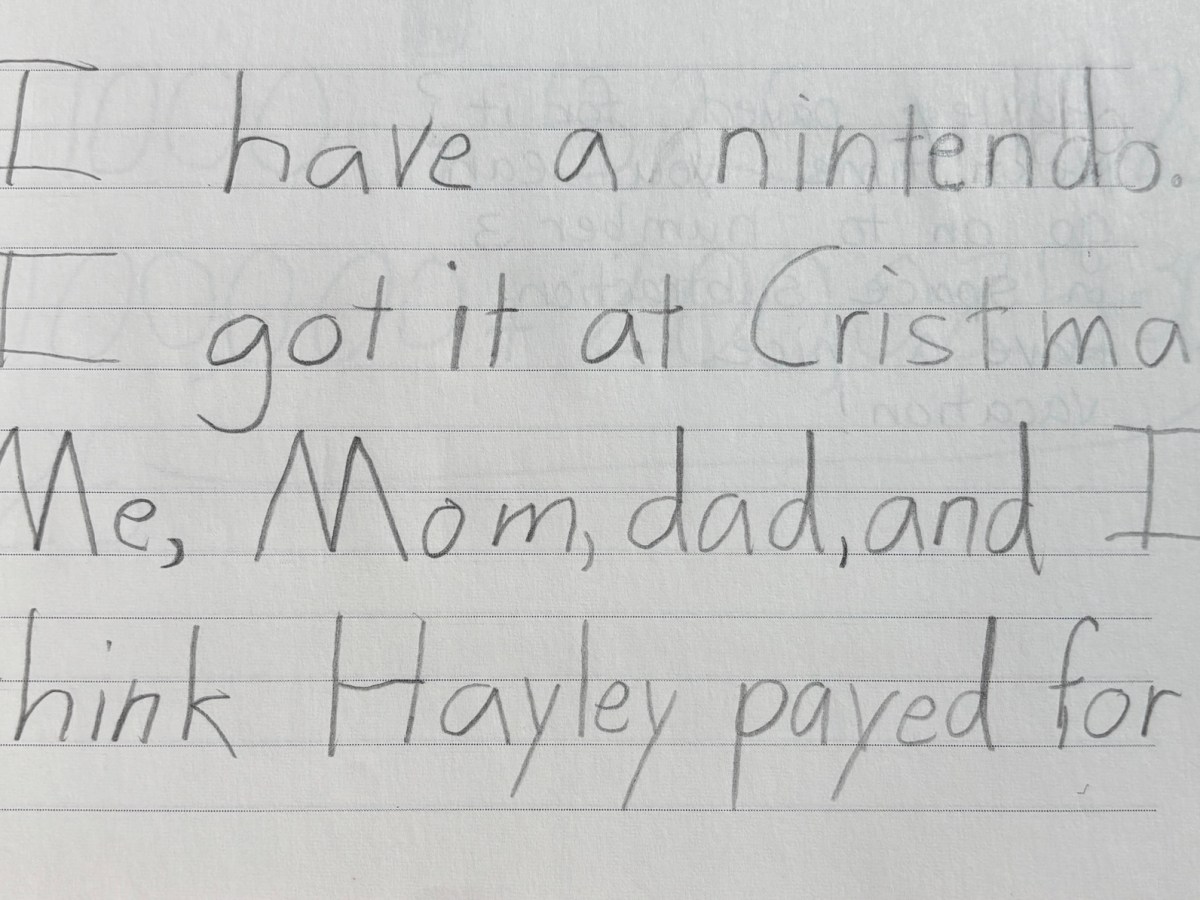 I have a nintendo.
I got it at Cristma
Me, Mom, dad, and I
hink Hayley payed for